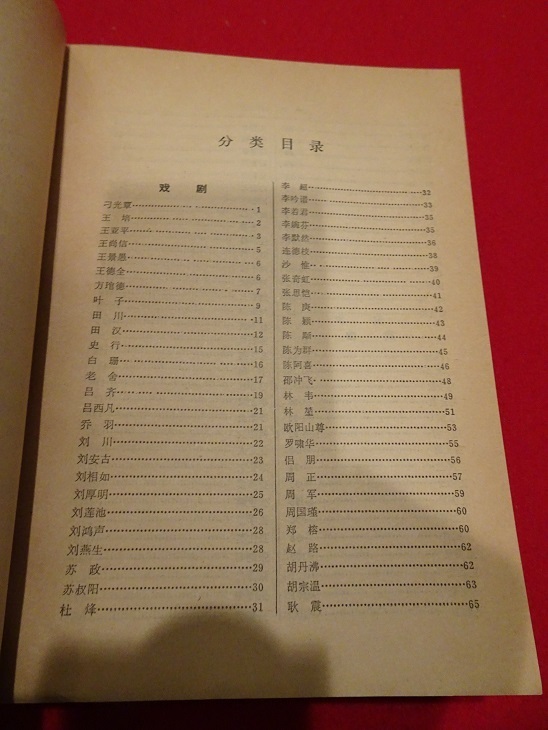 分类目录
戏剧
刁光覃 1
王培 2
王亚平 3
王尚信 5
王景愚 6
王德全 6
方地德 7
叶子 9
田川 11
田汉 12
史行 15
白珊 16
老舍 17
吕齐 19
吕西凡 21
乔羽 21
刘川 22
刘安古 23
刘相如 24
刘厚明 25
刘莲池 26
刘鸿声 28
刘燕生 28
苏政 29
苏叔阳 30
杜烽 31
李超 32
李吟谱 33
李若君 35
李婉芬 35
李默然 36
连德枝 38
沙惟 39
张奇虹 40
张思恺 41
陈庚 42
陈颖 43
陈颙 44
陈为群 45
陈阿喜 46
邵冲飞 48
林韦 49
林堃 51
欧阳山尊 53
罗啸华 55
侣朋 56
周正 57
周军 59
周国瑾 60
郑榕 60
赵路 62
胡丹沸 62
胡宗温 63
耿震 65